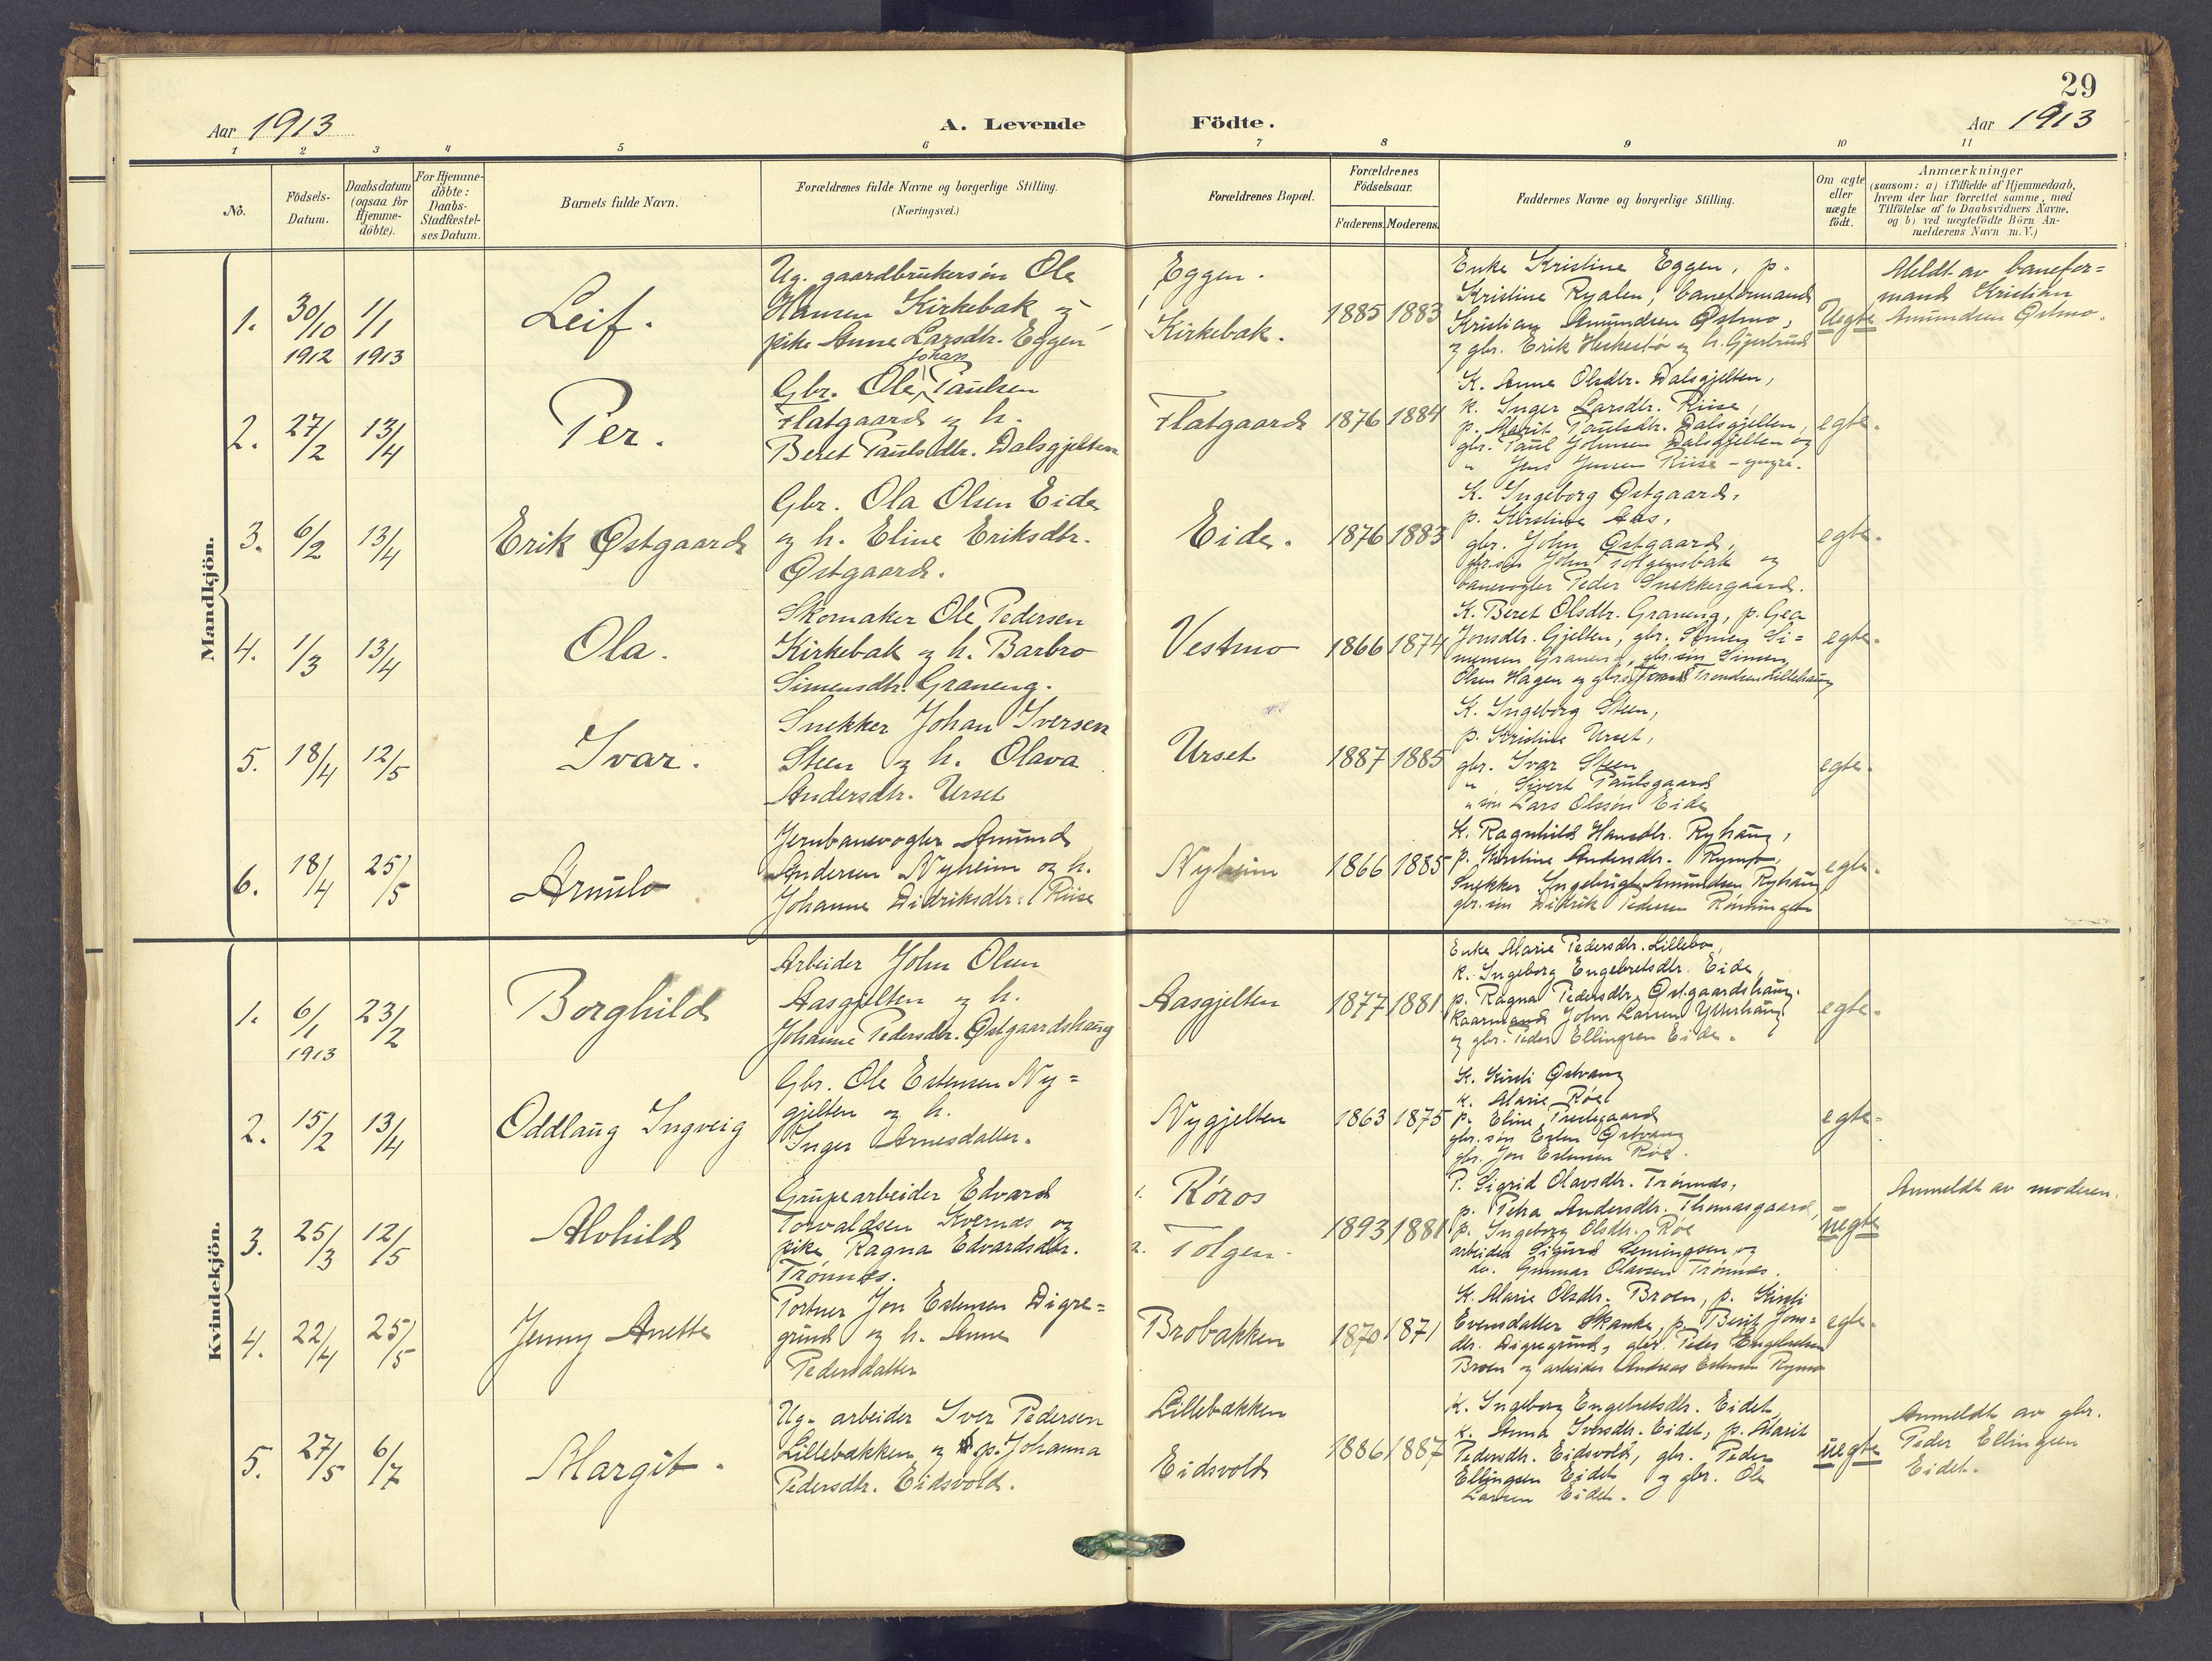 29
Aar 1913
A. Levende Födte.
Aar 1913
1 2 3 4 5 6 7 8 9 10 11
No.
Födsels-
Datum.
Daabsdatum
(ogsaa for
Hjemme-
döbte).
For Hjemme-
döbte:
Daabs-
Stadfæstel-
ses Datum.
Barnets fulde Navn.
Forældrenes fulde Navne og borgerlige Stilling.
(Næringsvei.)
Forældrenes Bopæl.
Forældrenes
Födselsaar.
Faderens. Moderens.
Faddernes Navne og borgerlige Stilling.
Om ægte
eller
uægte
födt.
Anmærkninger
(saasom: a) i Tilfælde af Hjemmedaab,
hvem der har forrettet samme, med
Tilföielse af to Daabsvidners Navne,
og b) ved uægtefödte Börn An-
melderens Navn m. V.)
Mandkjön.
1.
30/10 1/1
1912 1913
Leif.
Ug. gaardbrukersøn Ole
Hansen Kirkebak og
pike Anne Larsdtr. Eggen
Eggen.
Kirkebak.
1885 1883
Enke Kristine Eggen, p.
Kristine Ryalen, baneformand
Kristian Amundsen Østmo,
og gbr. Erik og h. Gjertrud
Uegte
Meldt av banefor=
mand Kristian
Amundsen Østmo.
2.
27/2 13/4
Per.
Johan
Gbr. Ole Paulsen
Flatgaard og h.
Beret Paulsdtr. Dalsgjelten
Flatgaard
1876 1884
K. Anne Olsdtr. Dalsgjelten,
k. Inger Larsdtr. Riise,
p. Marit Paulsdtr. Dalsgjelten,
gbr. Paul Johnsen Dalsgjelten og
" Jens Jensen Riise - yngre.
egte.
3.
6/2 13/4
Erik Østgaard
Gbr. Ola Olsen Eide
og h. Eline Eriksdtr.
Østgaard.
Eide.
1876 1883
K. Ingeborg Østgaard,
p. Kirstine Aas,
gbr. John Østgaard,
gbr.søn John Tolgensbak og
banevogter Peder Snekkergaard.
egte.
4.
1/3 13/4
Ola.
Skomaker Ole Pedersen
Kirkebak og h. Barbro
Simensdtr. Graneng.
Vestmo
1866 1874
K. Beret Olsdtr. Graneng, p. Gea
Jonsdtr. Gjelten, gbr. Simen Si=
mensen Graneng, gbr.søn Simen
Olsen Hagen og Trond Trondsen Lillehaug
egte.
5.
18/4 12/5
Ivar.
Snekker Johan Iversen
Steen og h. Olava
Andersdtr. Urset
Urset
1887 1885
K. Ingeborg Steen,
p. Kristine Urset,
gbr. Ivar Steen
" Sivert Paulsgaard
" søn Lars Olssøn Eide
egte.
6.
18/4 25/5
Arnulv
Jernbanevogter Amund
Andersen Nyheim og h.
Johanne Didriksdtr. Riise
Nyheim
1866 1885
K. Ragnhild Hansdtr. Ryhaug,
p. Kirstine Andersdtr. Rymo,
Snekker Ingebrigt Amundsen Ryhaug
gbr. søn Didrik Pedersen Rønningen
egte.
Kvindekjön.
1.
6/1 23/2
1913
Borghild
Arbeider John Olsen
Aasgjelten og h.
Johanne Pedersdtr. Østgaardshaug
Aasgjelten
1877 1881
Enke Marie Pedersdtr. Lillebo,
k. Ingeborg Engebretsdtr. Eide,
p. Ragna Pedersdtr. Østgaardshaug.
kaarmand John Larsen Ytterhaug
og gbr. Peder Ellingsen Eide.
egte.
2.
15/2 13/4
Oddlaug Ingveig
Gbr. Ole Estensen Ny=
gjelten og h.
Inger Arnesdatter.
Nygjelten
1863 1875
K. Kirsti Østvang
k. Marie Røe
p. Eline
gbr. søn Esten Østvang
gbr. Jon Estensen Røe.
egte.
3.
25/3 12/5
Alvhild
Grupearbeider Edvard
Torvaldsen Kvernes og
pike Ragna Edvardsdtr.
Trønnes.
1. Røros
2. Tolgen.
1893 1881
P. Sigrid Olavsdtr. Trønnes,
p. Petra Andersdtr. Thomasgaard,
p. Ingeborg Olsdtr. Røe
arbeider Sigurd Lerningsen og
do. Gunnar Olavsen Trønnes.
uegte
Anmeldt av moderen.
4.
22/4 25/5
Jenny Anette
Portner Jon Estensen Digre=
grind og h. Anne
Pedersdatter
Brobakken
1870 1871
K. Marie Olsdtr. Broen, p. Kirsti
Evensdatter Skanke, p. Berit Jons=
dtr. Digregrind, gbr. Peder Engebretsen
Broen og arbeider Andreas Estensen Rymo
egte.
5.
27/5 6/7
Margit.
Ug. arbeider Iver Pedersen
Lillebakken og p. Johanna
Pedersdtr. Eidsvold.
Lillebakken
Eidsvold
1886 1887
K. Ingeborg Engebretsdtr. Eidet,
k. Anna Iversdtr. Eidet, p. Marit
Pedersdtr. Eidsvold, gbr. Peder
Ellingsen Eidet og gbr. Ole
Larsen Eidet.
uegte
Anmeldt av gbr.
Peder Ellingsen
Eidet.